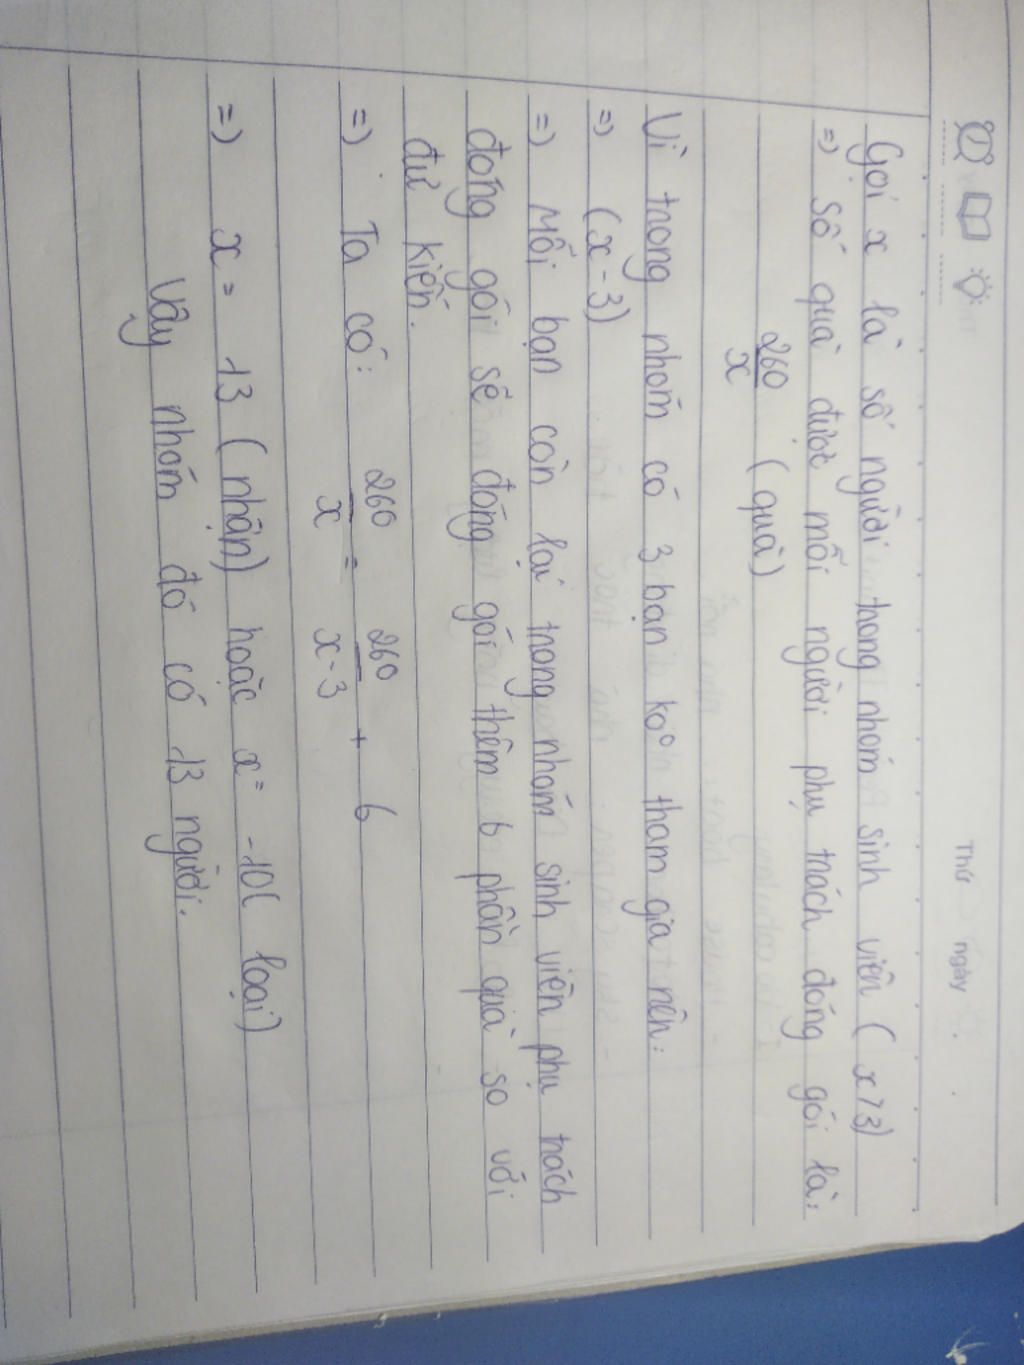 Thứ
ngày
Gọi x là số người trong nhóm sinh viên ( x>3)
=) Số quà được mỗi người phụ trách đóng gói là:
260/x (quà)
Vì trong nhóm có 3 bạn ko tham gia nên:
=) (x-3)
=) Mỗi bạn còn lại trong nhóm sinh viên phụ trách
đóng gói sẽ đóng gói thêm 6 phần quà so với
dự kiến.
=) Ta có: 260/x = 260/x-3 + 6
=) x = 13 (nhận) hoặc x= -10( loại)
Vậy nhóm đó có 13 người.